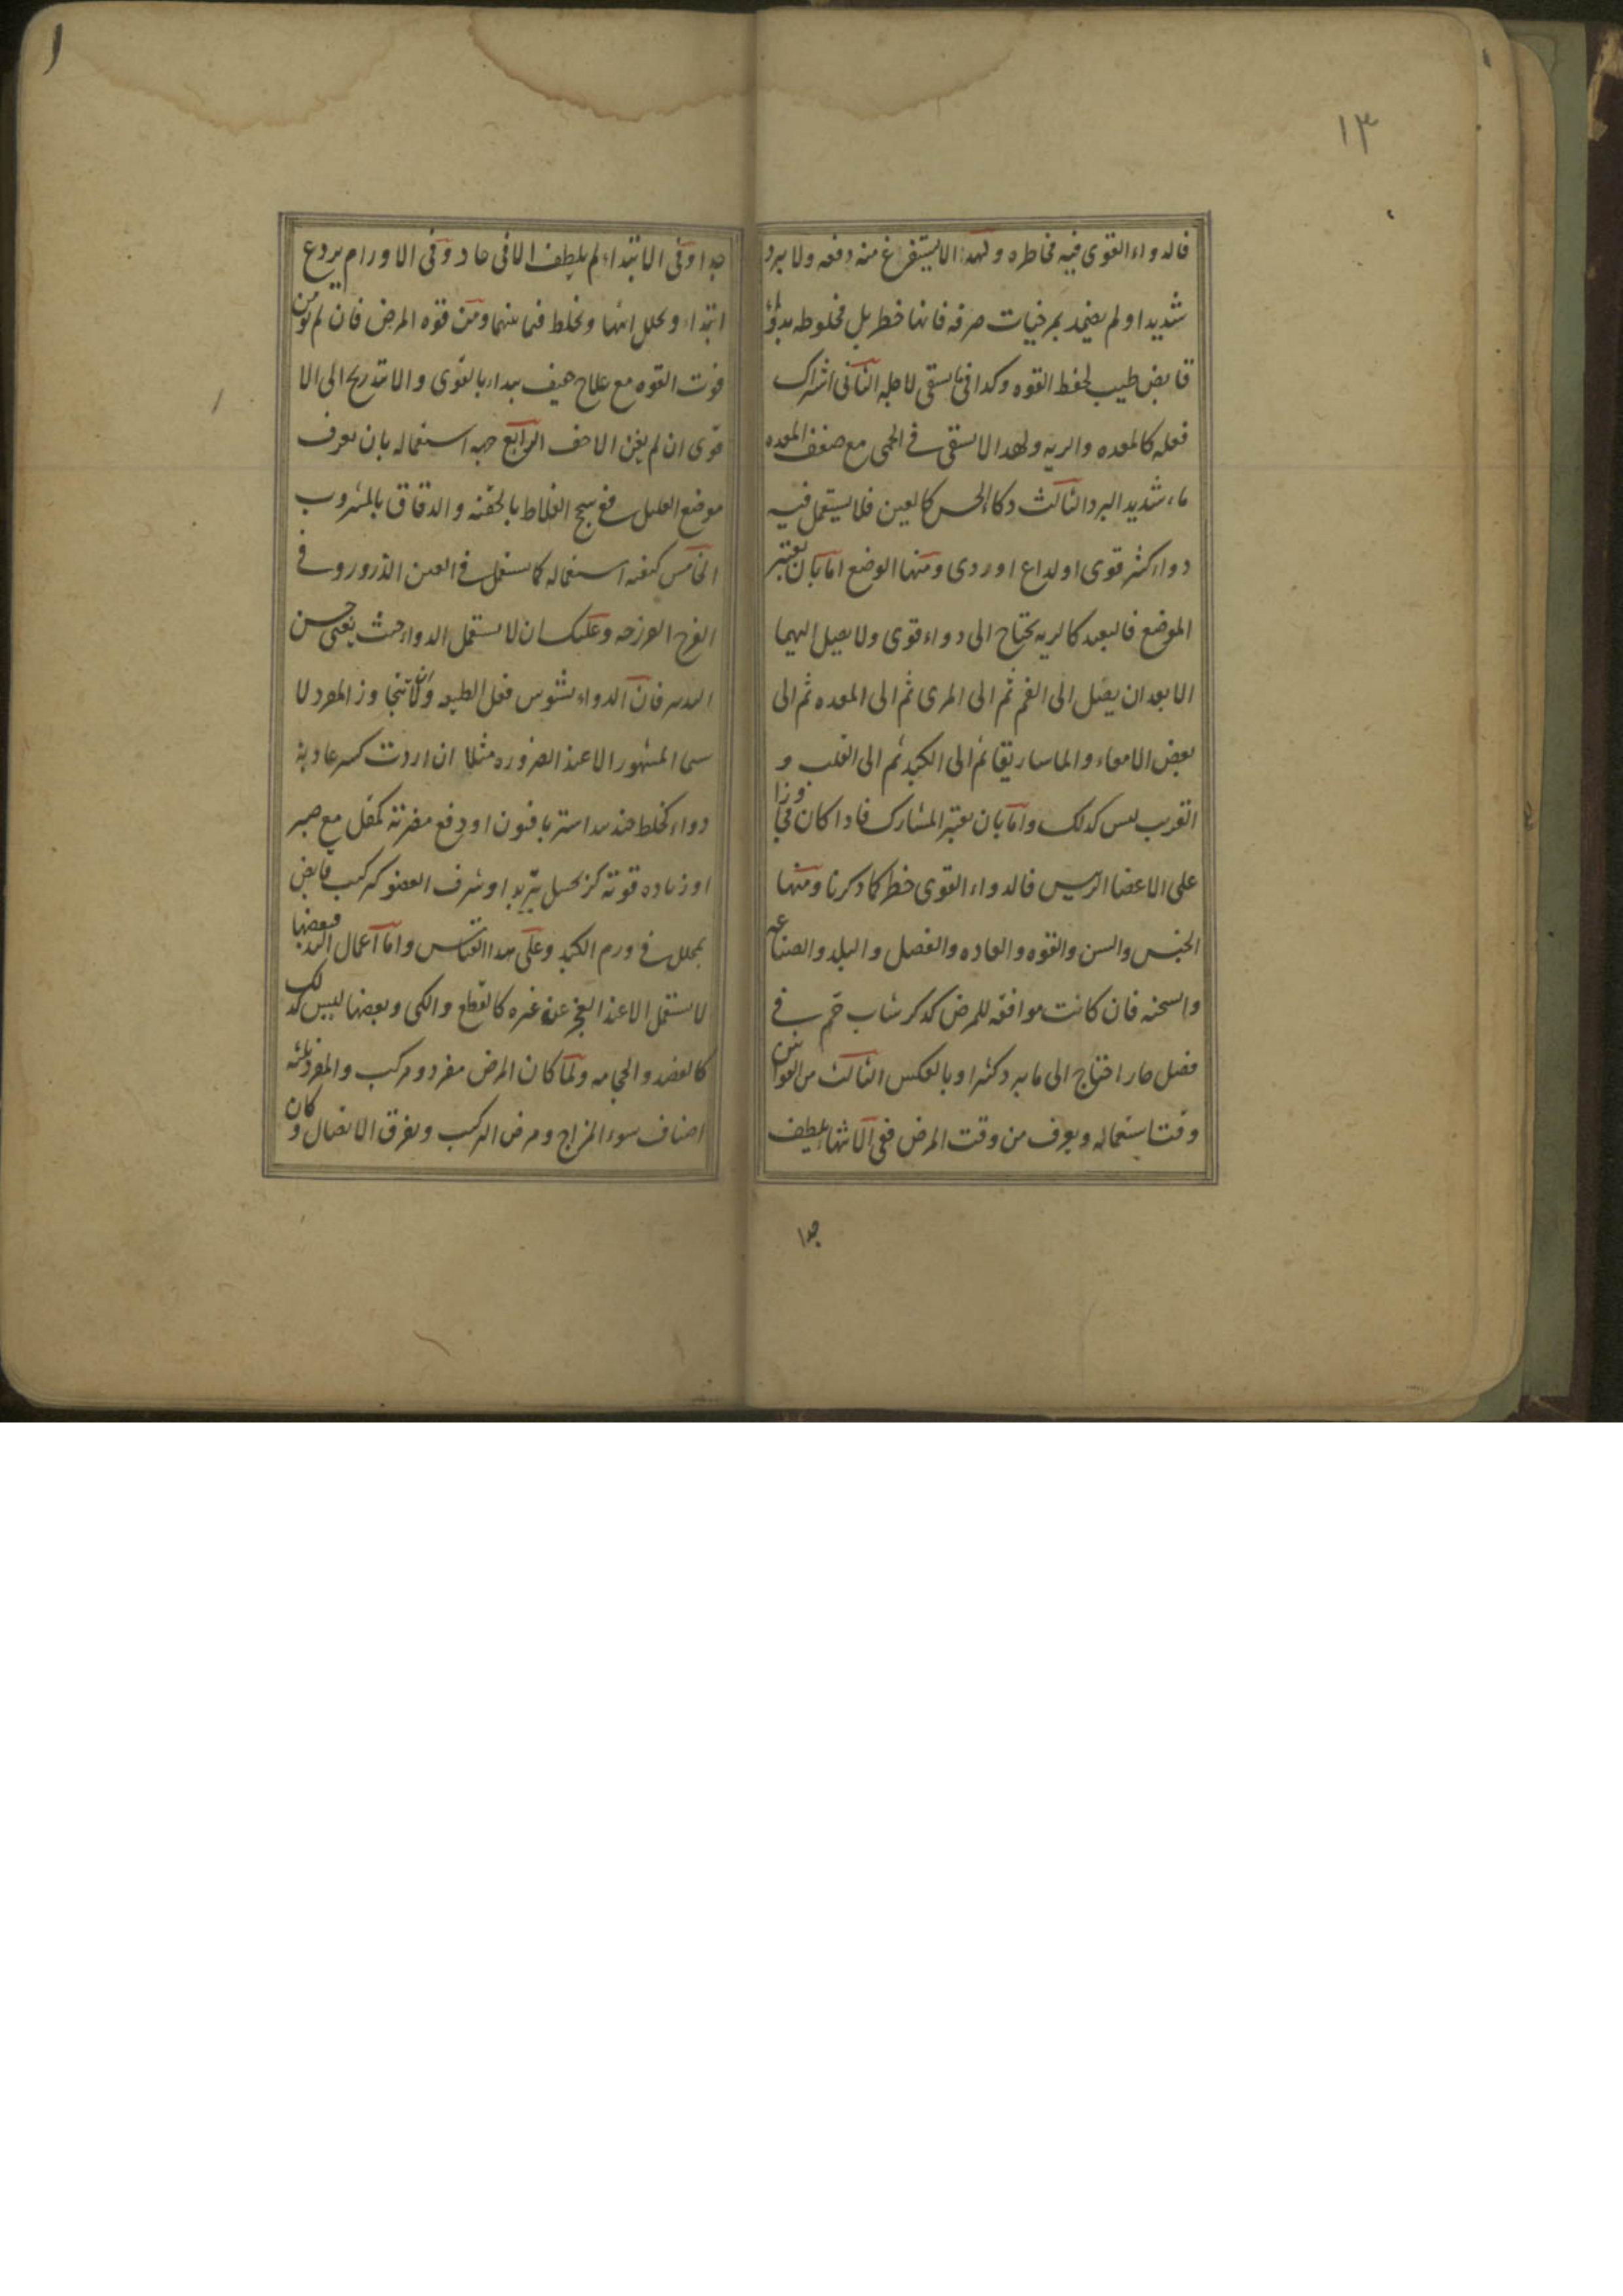 ١٣
فالدواء القوى فيه مخاطره ولهذا لا يستفرغ منه دفعه ولا يبرد
شديدا ولم يضمد بمرخيات صرفه فانها خطر بل مخلوطه بدواء
قابض طيب لحفظ القوه وكدا فى ما يسقى لاجله الثانى اشراك
فعله كالمعده والريه ولهدا لا يسقى فى الحمى مع ضعف المعده
ماء شديد البرد الثالث دكاء الحس كالعين فلا يستعمل فيه
دواء كثير قوى او لداع او ردى ومنها الوضع اما بان يعتبر
الموضع فالبعيد كالريه يحتاج الى دواء قوى ولا يصل اليهما
الا بعد ان يصل الى الفم ثم الى المرى ثم الى المعده ثم الى
بعض الامعاء والماساريقا ثم الى الكبد ثم الى القلب و
القريب ليس كدلك واما بان يعتبر المشارك فادا كان مجاورا
على الاعضا الرئيس فالدواء القوى خطر كما دكرنا ومنها
الجنس والسن والقوه والعاده والفصل والبلد والصناعه
والسحنه فان كانت موافقه للمرض كدكر شاب حم فى
فصل حار احتاج الى ما يبرد كثيرا وبالعكس الثالث من القوانين
وقت استعماله ويعرف من وقت المرض ففى الانتها يلطف
جدا
جدا وفى الابتداء لم يلطف الا فى حاد وفى الاورام يردع
ابتداء ويحلل انتها ويخلط فيما بينهما ومن قوه المرض فان لم يؤمن
فوت القوه مع علاج خفيف يبدا بالقوى والا بتدريج الى الا
قوى ان لم يغن الاخف الرابع جهه استعماله بان يعرف
موضع العليل ففى سحج الغلاظ بالحقنه والدقاق بالمشروب
الخامس كيفيه استعماله كما يستعمل فى العين الذرور وفى
الفرج الفرزجه وعليك ان لا يستعمل الدواء حيث يغنى حسن
التدبير فان الدواء يشوش فعل الطبيعه وان لا يتجاوز المفرد لا
سيما المشهور الا عند الضروره مثلا ان اردت كسر عاديه
دواء كخلط جندبيداستر بافيون او دفع مضرته كمقل مع صبر
او زياده قوته كزنجبيل بتربد او شرف العضو كتركيب قابض
بمحلل فى ورم الكبد وعلى هدا القياس واما اعمال اليد فبعضها
لا يستعمل الا عند العجز عن غيره كالقطع والكى وبعضها ليس كدلك
كالفصد والحجامه ولما كان المرض مفرد ومركب والمفرد ثلثه
اصناف سوء المزاج ومرض التركيب وتفرق الاتصال وكان